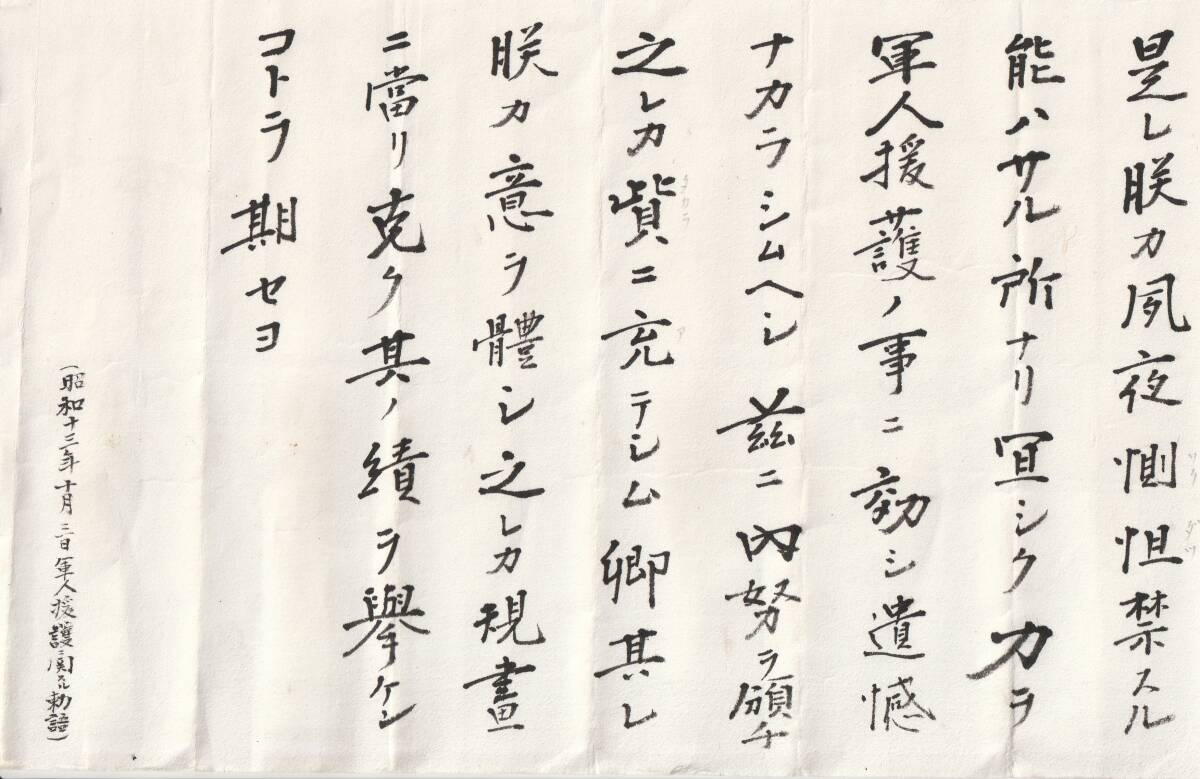 是レ朕カ夙夜惻怛禁スル
能ハサル所ナリ宜シク力ヲ
軍人援護ノ事ニ効シ遺憾
ナカラシムヘシ茲ニ內努ヲ頒チ
之レカ貲ニ充テシム卿其レ
朕カ意ヲ體シ之レカ規畫
ニ當リ克ク其ノ績ヲ擧ケン
コトヲ期セヨ
(昭和十三年十月三日軍人援護ニ関スル勅語)